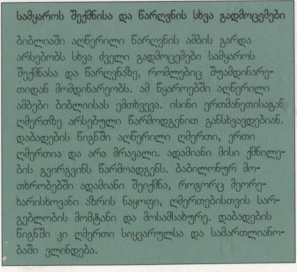 სამყაროს შექმნისა და წარღვნის სხვა გადმოცემები
ბიბლიაში აღწერილი წარღვნის ამბის გარდა
არსებობს სხვა ძველი გადმოცემები სამყაროს
შექმნასა და წარღვნაზე, რომლებიც შუამდინარე-
თიდან მომდინარეობს. ამ წყაროებში აღწერილი
ამბები ბიბლიისას ემთხვევა. ისინი ერთმანეთისაგან
ღმერთზე არსებული წარმოდგენით განსხვავდებიან.
დაბადების წიგნში აღწერილი ღმერთი, ერთი
ღმერთია და არა მრავალი. ადამიანი მისი ქმნილე-
ბის გვირგვინს წარმოადგენს. ბაბილონურ მო-
თხრობებში ადამიანი შეიქმნა, როგორც მეორე-
ხარისხოვანი აზრის ნაყოფი, ღმერთებისთვის სარ-
გებლობის მომტანი და მოსამსახურე. დაბადების
წიგნში კი ღმერთი სიყვარულსა და სამართლიანო-
ბაში ვლინდება.